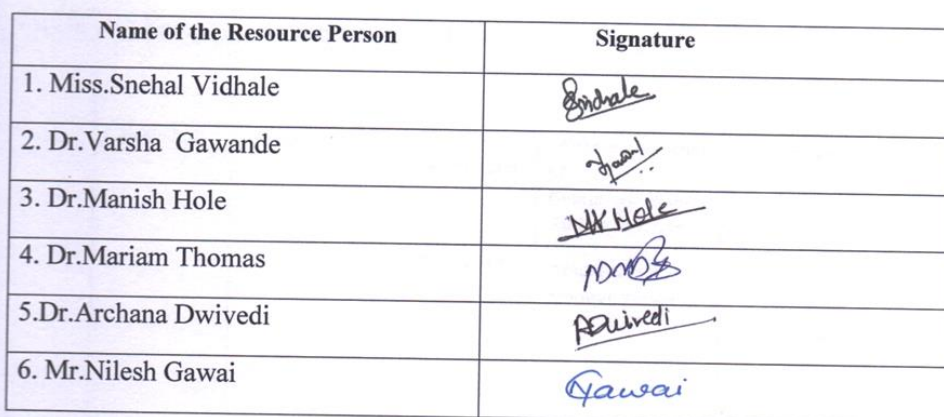 Name of the Resource Person Signature
1. Miss.Snehal Vidhale Svidhale
2. Dr.Varsha Gawande
3. Dr.Manish Hole MK Hole
4. Dr.Mariam Thomas
5.Dr.Archana Dwivedi ADwivedi
6. Mr.Nilesh Gawai Gawai